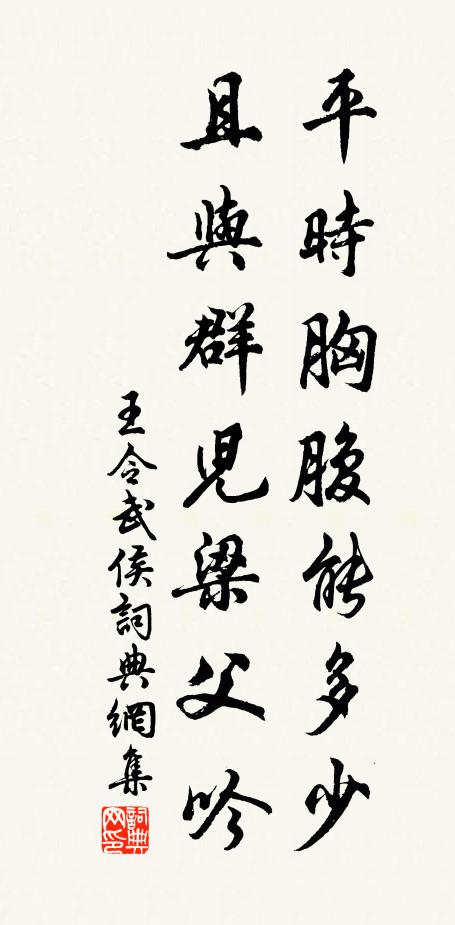 平時胸腹能多少
且與群兒梁父吟
王令武侯詞典網集
詞典网印